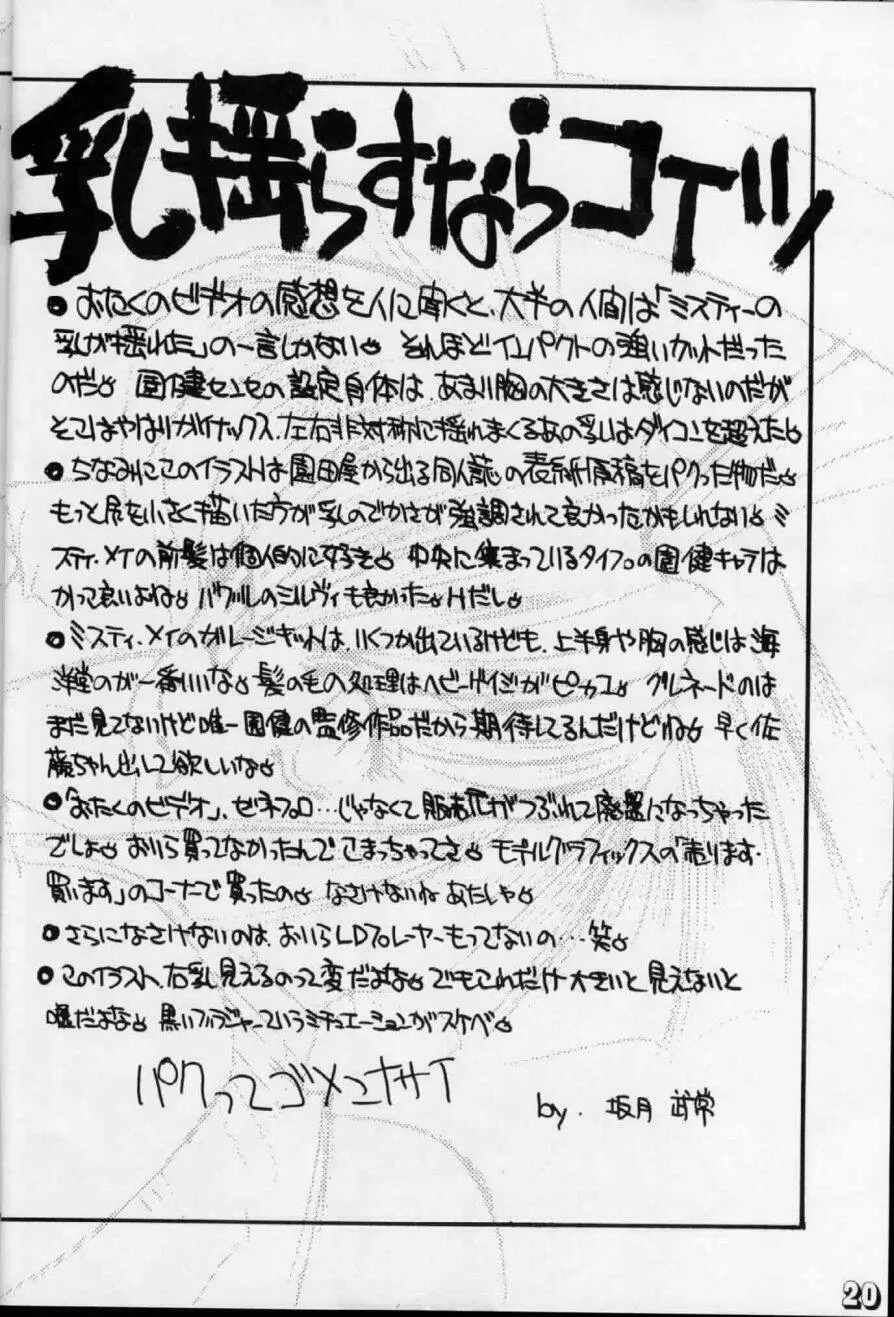 乳揺らすならコイツ
●おたくのビデオの感想を人に聞くと、大半の人間は「ミスティーの
乳が揺れた」の一言しかない。それほどインパクトの強いカットだった
のだ。園健センセの設定自体は、あまり胸の大きさは感じないのだが
そこはやはりガイナックス、左右非対称に揺れまくるあの乳はダイコンを超えた。
●ちなみにこのイラストは園田屋から出る同人誌の表紙原稿をパクった物だ。
もっと尻を小さく描いた方が乳のでかさが強調されて良かったかもしれない。ミ
スティ・メイの前髪は個人的に好き。中央に集まっているタイプの園健キャラは
かって良いよね。バウルのシルヴィも良かった。Hだし。
●ミスティ・メイのガレージキットは、いくつか出ているけども、上半身や胸の感じは海
洋堂のが一番いいな。髪の毛の処理はヘビーゲイジがピカコ。グレネードのは
まだ見てないけど唯一園健の監修作品だから期待してるんだけどね。早く佐
藤ちゃん出して欲しいな。
●「おたくのビデオ」、ゼネプロ…じゃなくて販売元がつぶれて廃盤になっちゃった
でしょ。おいら買ってなかったんでこまっちゃってさ。モデルグラフィックスの「売ります・
買います」のコーナーで買ったの。なさけないね あたしゃ。
●さらになさけないのは、おいらLDプレーヤーもってないの…笑。
●このイラスト、右乳見えるのって変だよな。でもこれだけ大きいと見えないと
嘘だよな。黒いブラジャーっていうシチュエーションがスケベ。
パクってゴメンナサイ
by. 坂月 武常
20